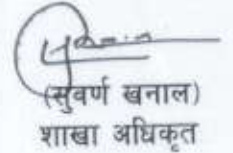 (सुवर्ण खनाल)
शाखा अधिकृत